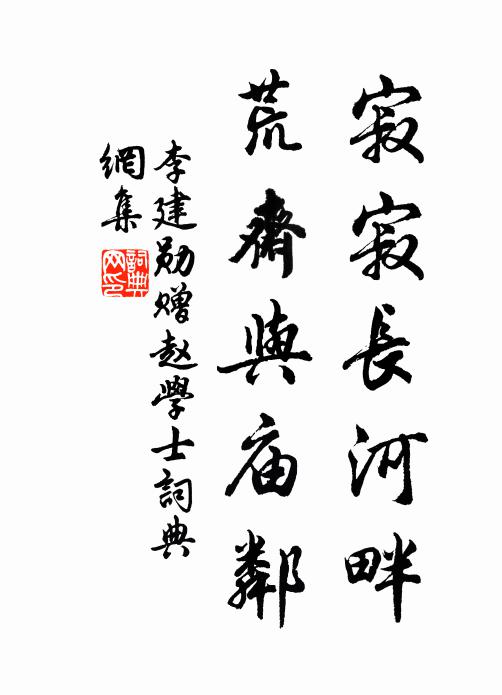 寂寂長河畔
荒齋與庙鄰
李建勋赠赵學士詞典
網集
詞典
网印